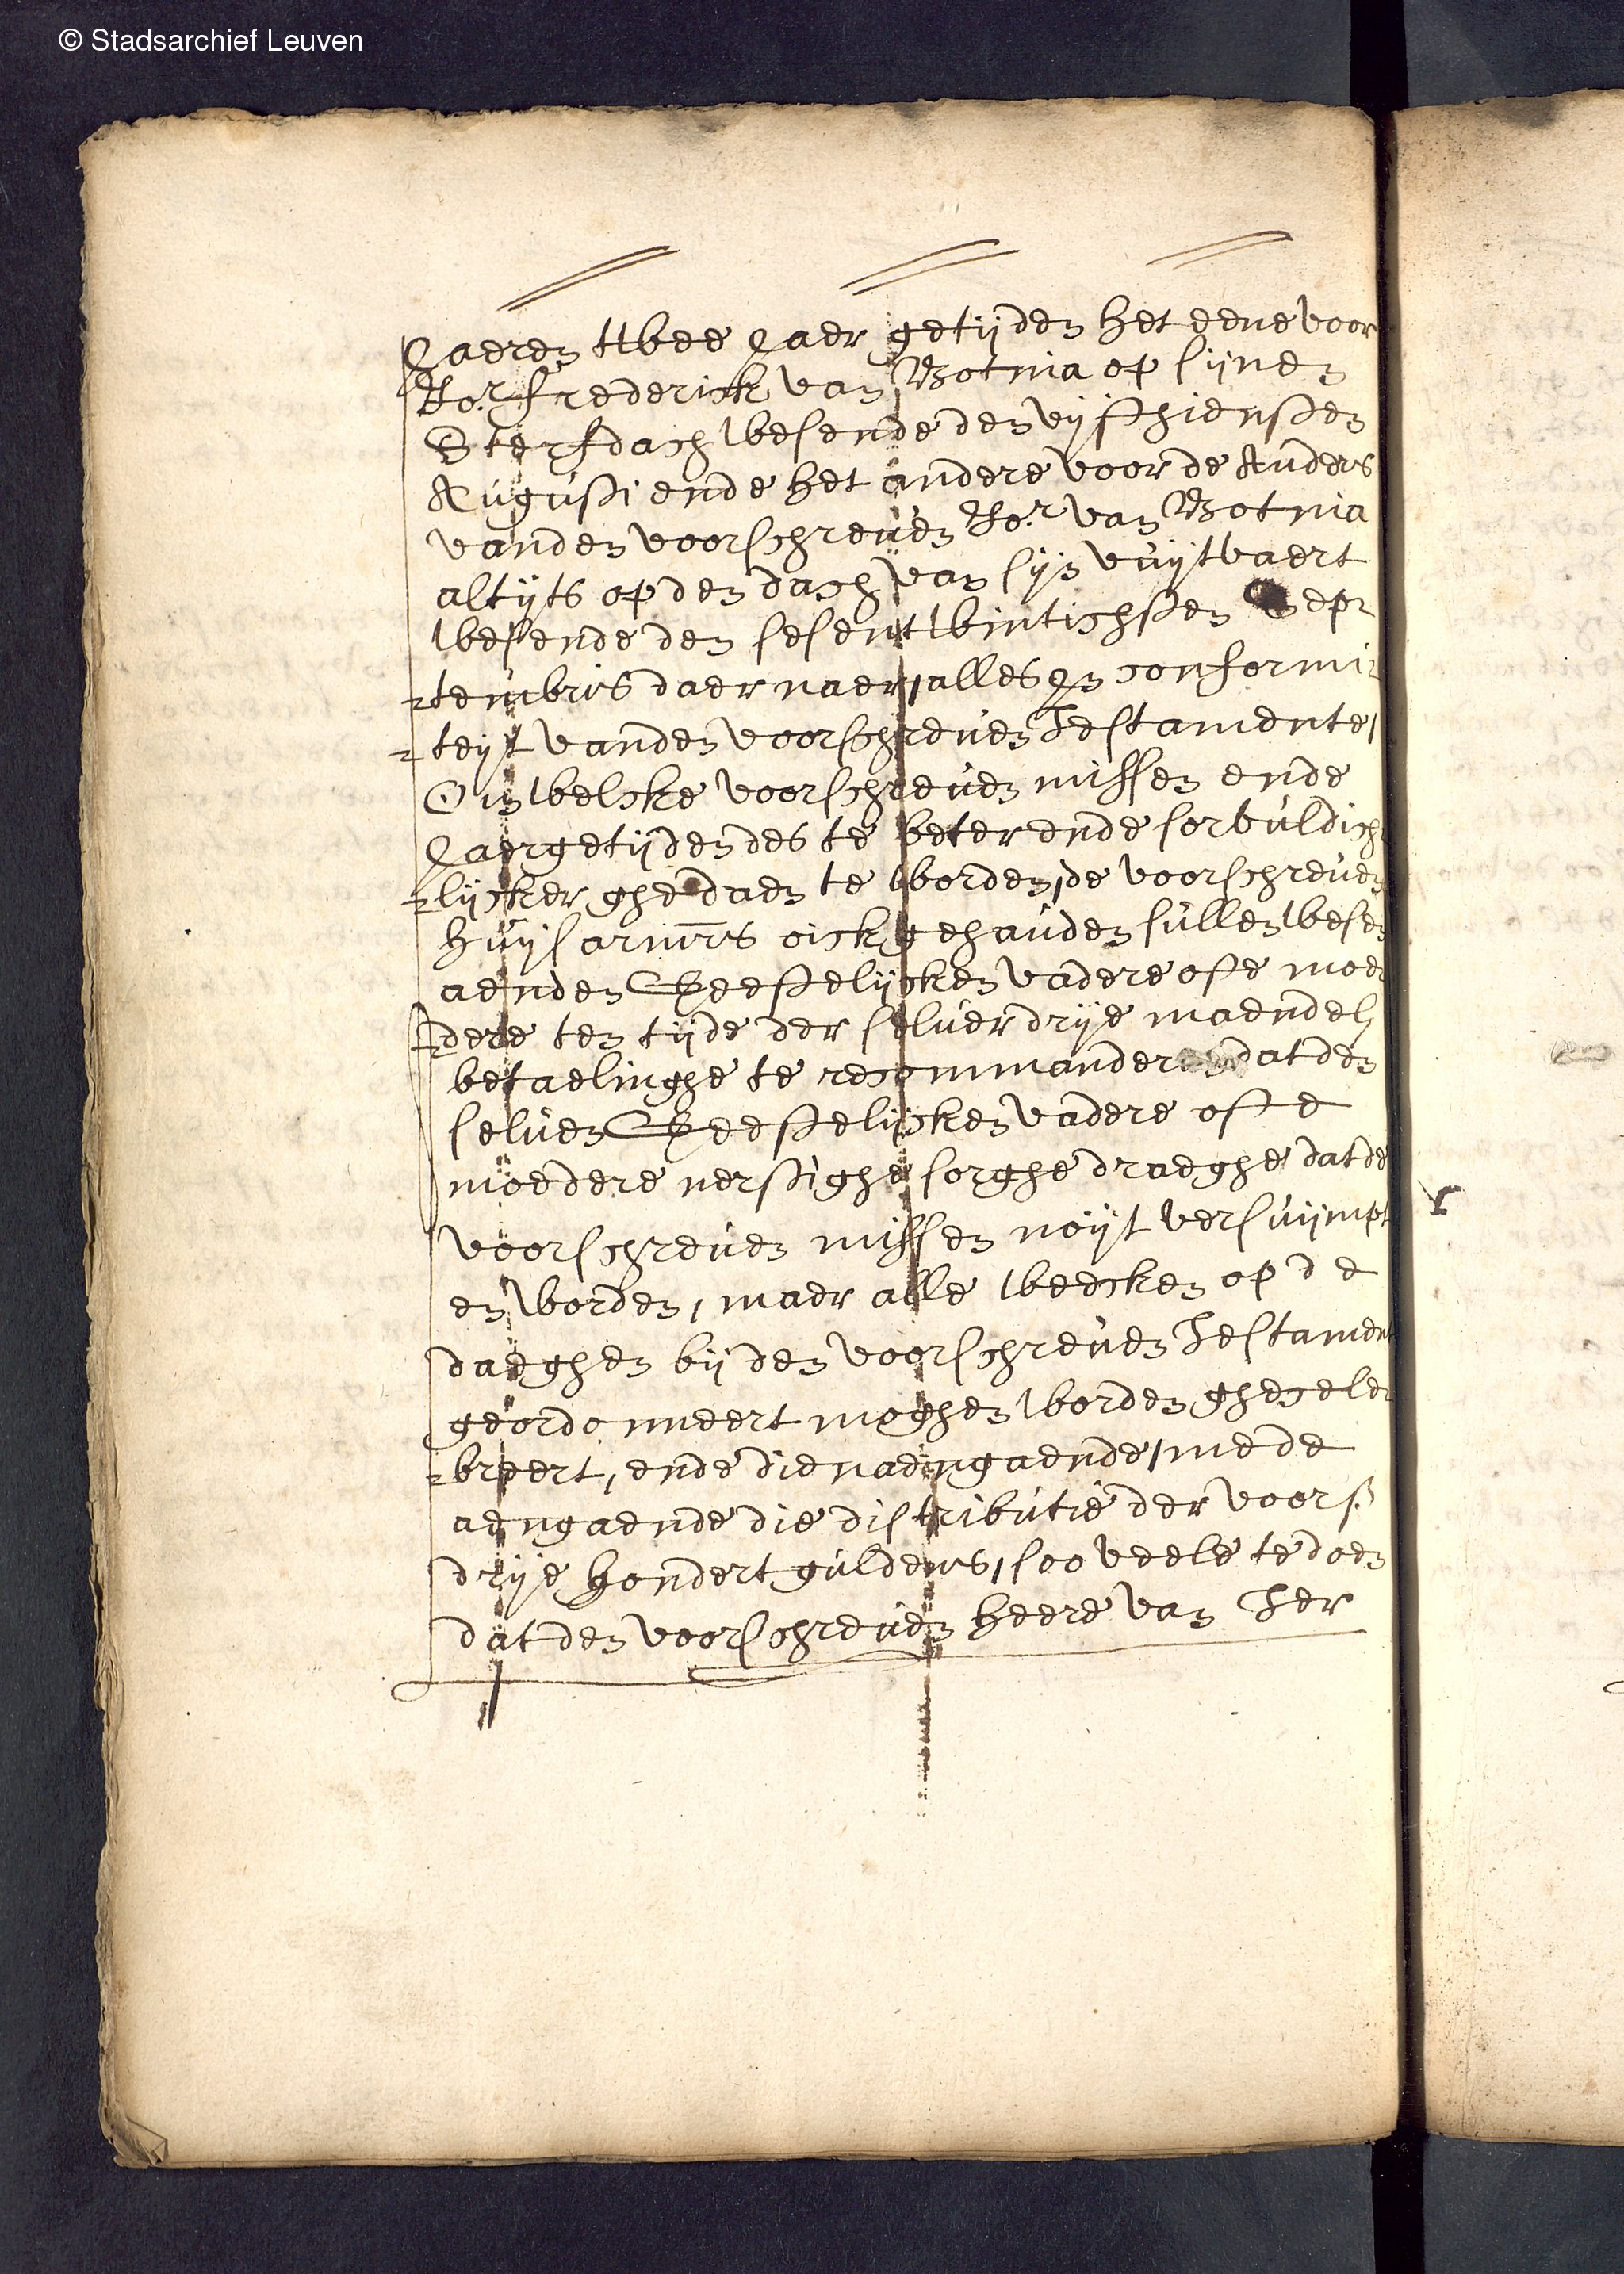 © Stadsarchief Leuven
Jaeren twee Jaer getijden het eene voor
Jor. frederick van Botnia op sijnen
Sterfdach wesende den vijfthiensten
Augusti ende het andere voor de Auders
vanden voorschreuen Jor. van Botnia
altyts op den dach van sijn vuijtvaert
wesende den sesentwintichsten Sep-
-tembris daer naer, alles In conformi-
-teyt vanden voorschreuen Testamente,
Om welcke voorschreuen missen ende
Jaergetijden des te beter ende sorvuldich-
-lycker ghedaen te worden, de voorschreuen
huijsarmrs oick gehauden sullen wesen
aenden Gheestelijcken vadere ofte moe-
-dere ten tijde der seluer drije maendel
betaelinghe te recommanderen dat den
seluen Gheestelijcken vadere ofte
moedere nerstighe sorghe draeghe dat de
voorschreuen missen noijt versuijmpt
en worden, maer alle weecken op de
daeghen bij den voorschreuen Testament
geordonneert moghen worden ghecele-
-breert, ende die naeingaende, mede
aengaende die distributie der voors.
drije hondert guldens, soo veele te doen
dat den voorschreuen heere van Ter